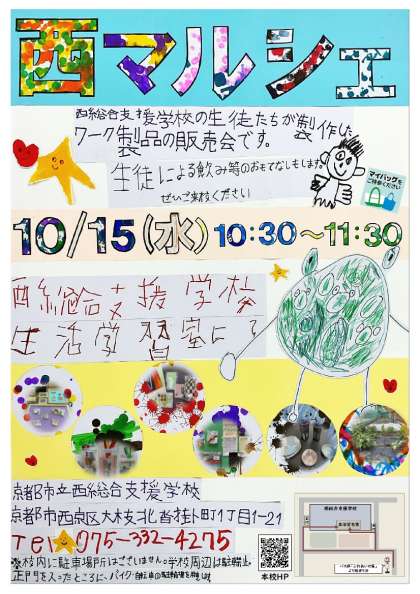 西マルシェ
西総合支援学校の生徒たちが製作した
ワーク製品の販売会です。
生徒による飲み等のおもてなしもします。
ぜひご来校ください
マイバッグを
ご持参ください
10/15(水) 10:30～11:30
西総合支援学校
生活学習室にて
京都市立西総合支援学校
京都市西京区大枝北沓掛町1丁目1-21
Tel 075-332-4275
※校内に駐車場所はございません。学校周辺は駐輪禁止。
正門を入ったところに、バイク・自転車の駐輪場を
本校HP
西総合支援学校